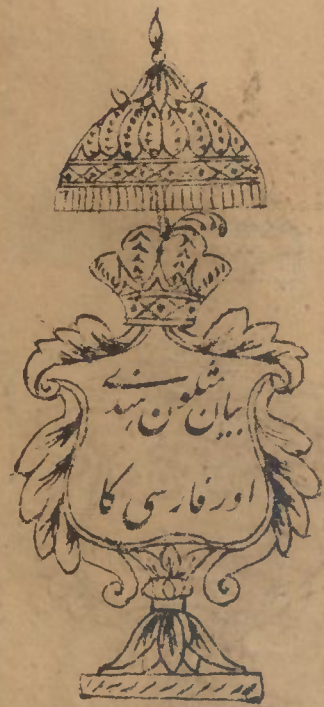 بیان شگون ہندی
اور فارسی کا